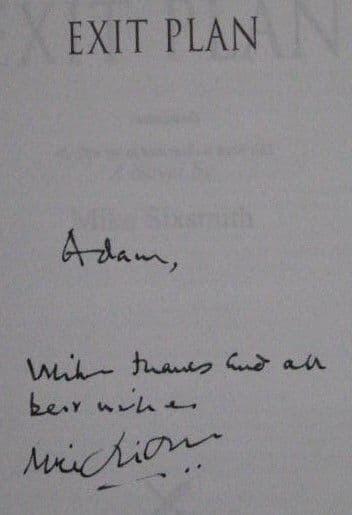 EXIT PLAN
A Novel by
Mike Sixsmith
Adam,
With thanks and all
best wishes